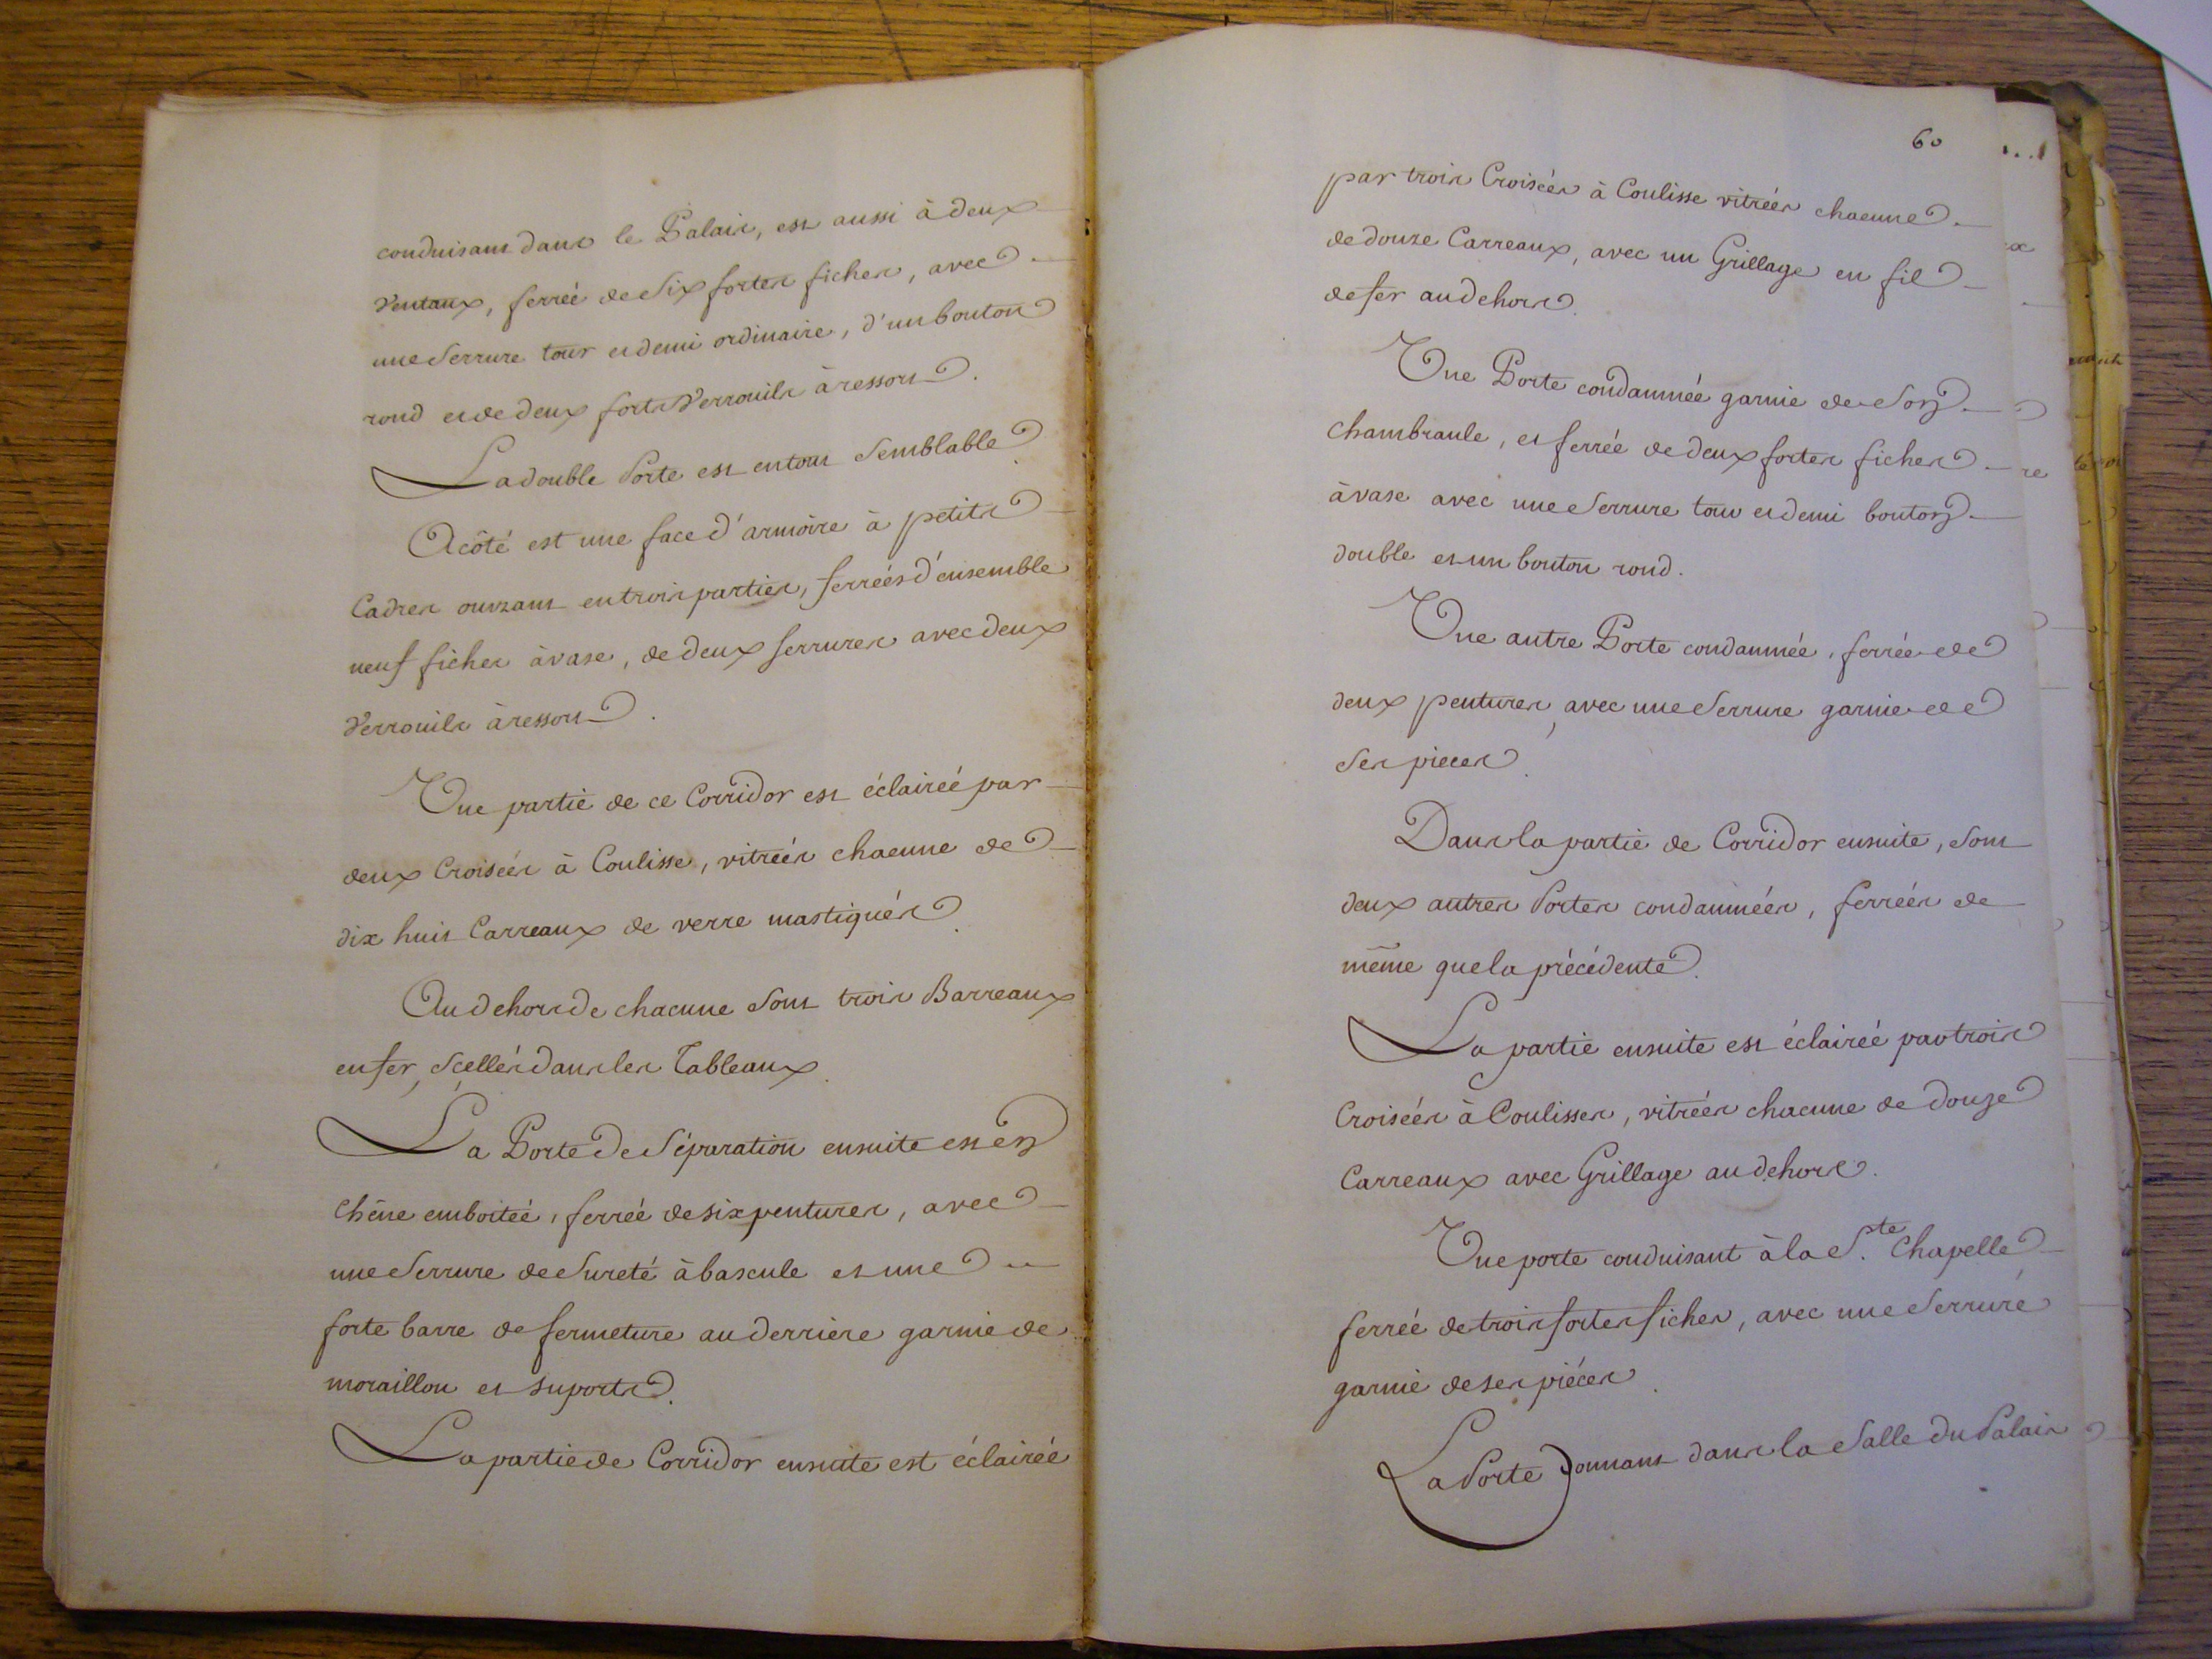 conduisant dans le Palais, est aussi à deux
Ventaux, ferrée de Six fortes fiches, avec
une Serrure tour et demi ordinaire, d'un bouton
rond et de deux forts Verrouils à ressort.
La double Porte est en tout Semblable.
A côté est une face d'armoire à petits
Cadres ouvrant en trois parties, ferrées d'ensemble
neuf fiches à vase, de deux serrures avec deux
Verrouils à ressort.
Une partie de ce Corridor est éclairée par
deux Croisées à Coulisse, vitrées chacune de
dix huit Carreaux de verre mastiqués.
Au dehors de chacune Sont trois Barreaux
en fer, Scellés dans les Tableaux.
La Porte de Séparation ensuite est en
Chêne emboitée, ferrée de six pentures, avec
une Serrure de Sureté à bascule et une
forte barre de fermeture au derriere garnie de
moraillon et suports.
La partie de Corridor ensuite est éclairée
60
par trois Croisées à Coulisse vitrées chacune
de douze Carreaux, avec un Grillage en fil
de fer au dehors.
Une Porte condamnée garnie de Son
Chambranle, et ferrée de deux fortes fiches
à vase avec une Serrure tour et demi bouton
double et un bouton rond.
Une autre Porte condamnée, ferrée de
deux pentures, avec une Serrure garnie de
Ses pieces.
Dans la partie de Corridor ensuite, Sont
deux autres Portes condamnées, ferrées de
même que la précédente.
La partie ensuite est éclairée par trois
Croisées à Coulisses, vitrées chacune de douze
Carreaux avec Grillage au dehors.
Une porte conduisant à la S.te Chapelle
ferrée de trois fortes fiches, avec une Serrure
garnie de ses piéces.
La Porte Donnant dans la Salle du Palais